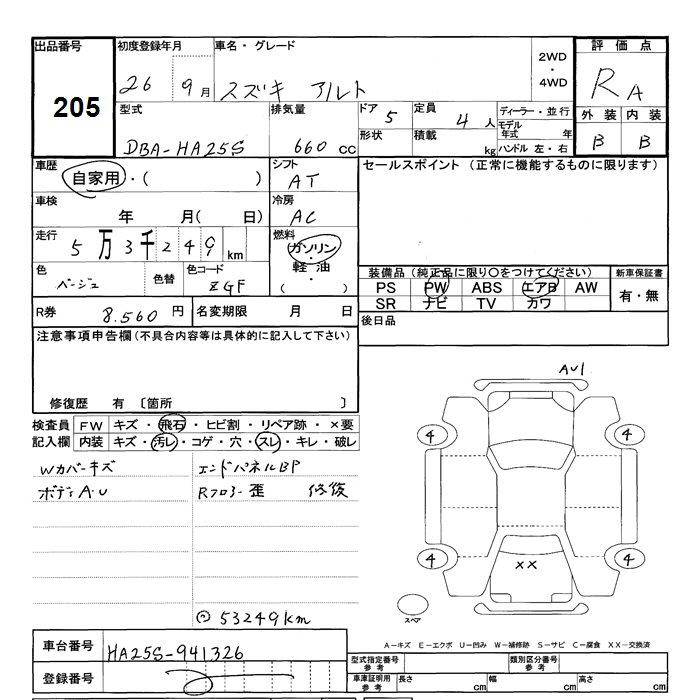 出品番号 初度登録年月 車名・グレード 2WD ・ 4WD 評価点
205
26 9月 スズキ アルト R A
型式 排気量 ドア 5 定員 4人 ディーラー・並行 外装 内装
DBA-HA25S 660cc 形状 積載 kg モデル年式 年 B B
ハンドル 左・右
車歴 自家用・( ) シフト AT セールスポイント (正常に機能するものに限ります)
車検 年 月( 日) 冷房 AC
走行 5万3千249km 燃料 ガソリン・軽油・( )
色 ベージュ 色替 色コード ZGF 装備品(純正品に限り○をつけてください) 新車保証書
PS PW ABS エアB AW 有・無
SR ナビ TV カワ
R券 8.560円 名変期限 月 日 後日品
注意事項申告欄(不具合内容等は具体的に記入して下さい)
修復歴 有 〔箇所 〕
検査員 FW キズ・飛石・ヒビ割・リペア跡・×要
記入欄 内装 キズ・汚レ・コゲ・穴・スレ・キレ・破レ
Wカバーキズ エンドパネルBP
ボディA.U Rフロアー歪 修復
AU1
4 4
4 4
XX
スペア
⊙53249km
A-キズ E-エクボ U-凹み W-補修跡 S-サビ C-腐食 XX-交換済
車台番号 HA25S-941326 型式指定番号 参考 類別区分番号 参考
登録番号 車庫証明用 参考 長さ cm 幅 cm 高さ cm